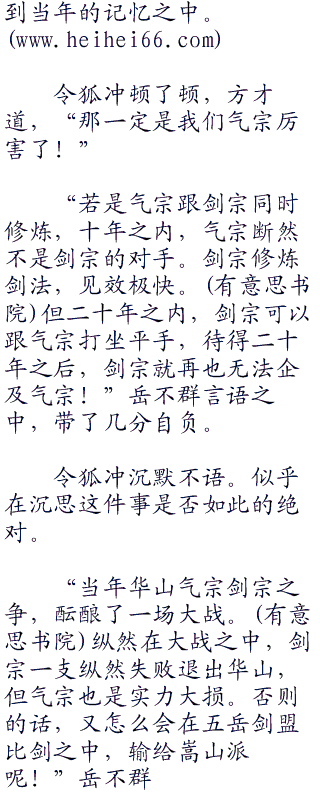 到当年的记忆之中。
(www.heihei66.com)
令狐冲顿了顿，方才
道，“那一定是我们气宗厉
害了！”
“若是气宗跟剑宗同时
修炼，十年之内，气宗断然
不是剑宗的对手。剑宗修炼
剑法，见效极快。(有意思书
院)但二十年之内，剑宗可以
跟气宗打坐平手，待得二十
年之后，剑宗就再也无法企
及气宗！”岳不群言语之
中，带了几分自负。
令狐冲沉默不语。似乎
在沉思这件事是否如此的绝
对。
“当年华山气宗剑宗之
争，酝酿了一场大战。(有意
思书院)纵然在大战之中，剑
宗一支纵然失败退出华山，
但气宗也是实力大损。否则
的话，又怎么会在五岳剑盟
比剑之中，输给嵩山派
呢！”岳不群